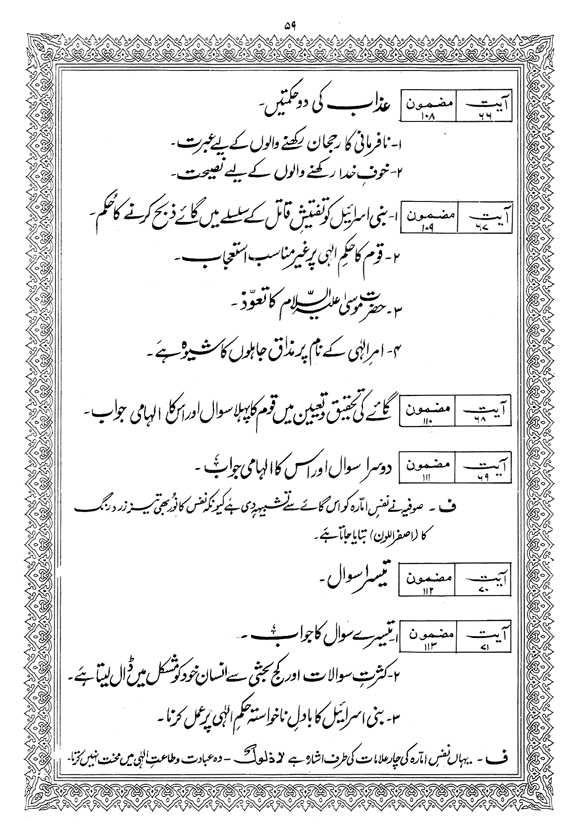 ۵۹
آیت ۶۶ مضمون ۱۰۸ عذاب کی دو حکمتیں۔
۱- نافرمانی کا رجحان رکھنے والوں کے لیے عبرت۔
۲- خوفِ خدا رکھنے والوں کے لیے نصیحت۔
آیت ۶۷ مضمون ۱۰۹ ۱- بنی اسرائیل کو تفتیش قاتل کے سلسلے میں گائے ذبح کرنے کا حُکم۔
۲- قوم کا حکمِ الٰہی پر غیر مناسب استعجاب۔
۳- حضرت موسیٰ علیہ السلام کا تعوّذ۔
۴- امرِ الٰہی کے نام پر مذاق جاہلوں کا شیوہ ہے۔
آیت ۶۸ مضمون ۱۱۰ گائے کی تحقیق و تعیین میں قوم کا پہلا سوال اور اس کا الہامی جواب۔
آیت ۶۹ مضمون ۱۱۱ دوسرا سوال اور اس کا الہامی جواب۔
ف - صوفیہ نے نفسِ امّارہ کو اس گائے سے تشبیہہ دی ہے کیونکہ نفس کا نُور بھی تیز زرد رنگ
کا (اصفر اللون) بتایا جاتا ہے۔
آیت ۷۰ مضمون ۱۱۲ تیسرا سوال۔
آیت ۷۱ مضمون ۱۱۳ ۱- تیسرے سوال کا جواب۔
۲- کثرتِ سوالات اور کج بحثی سے انسان خود کو مشکل میں ڈال لیتا ہے۔
۳- بنی اسرائیل کا بادلِ ناخواستہ حکمِ الٰہی پر عمل کرنا۔
ف - یہاں نفسِ امّارہ کی چار علامات کی طرف اشارہ ہے لا ذلول - وہ عبادت و طاعتِ الٰہی میں محنت نہیں کرتا۔